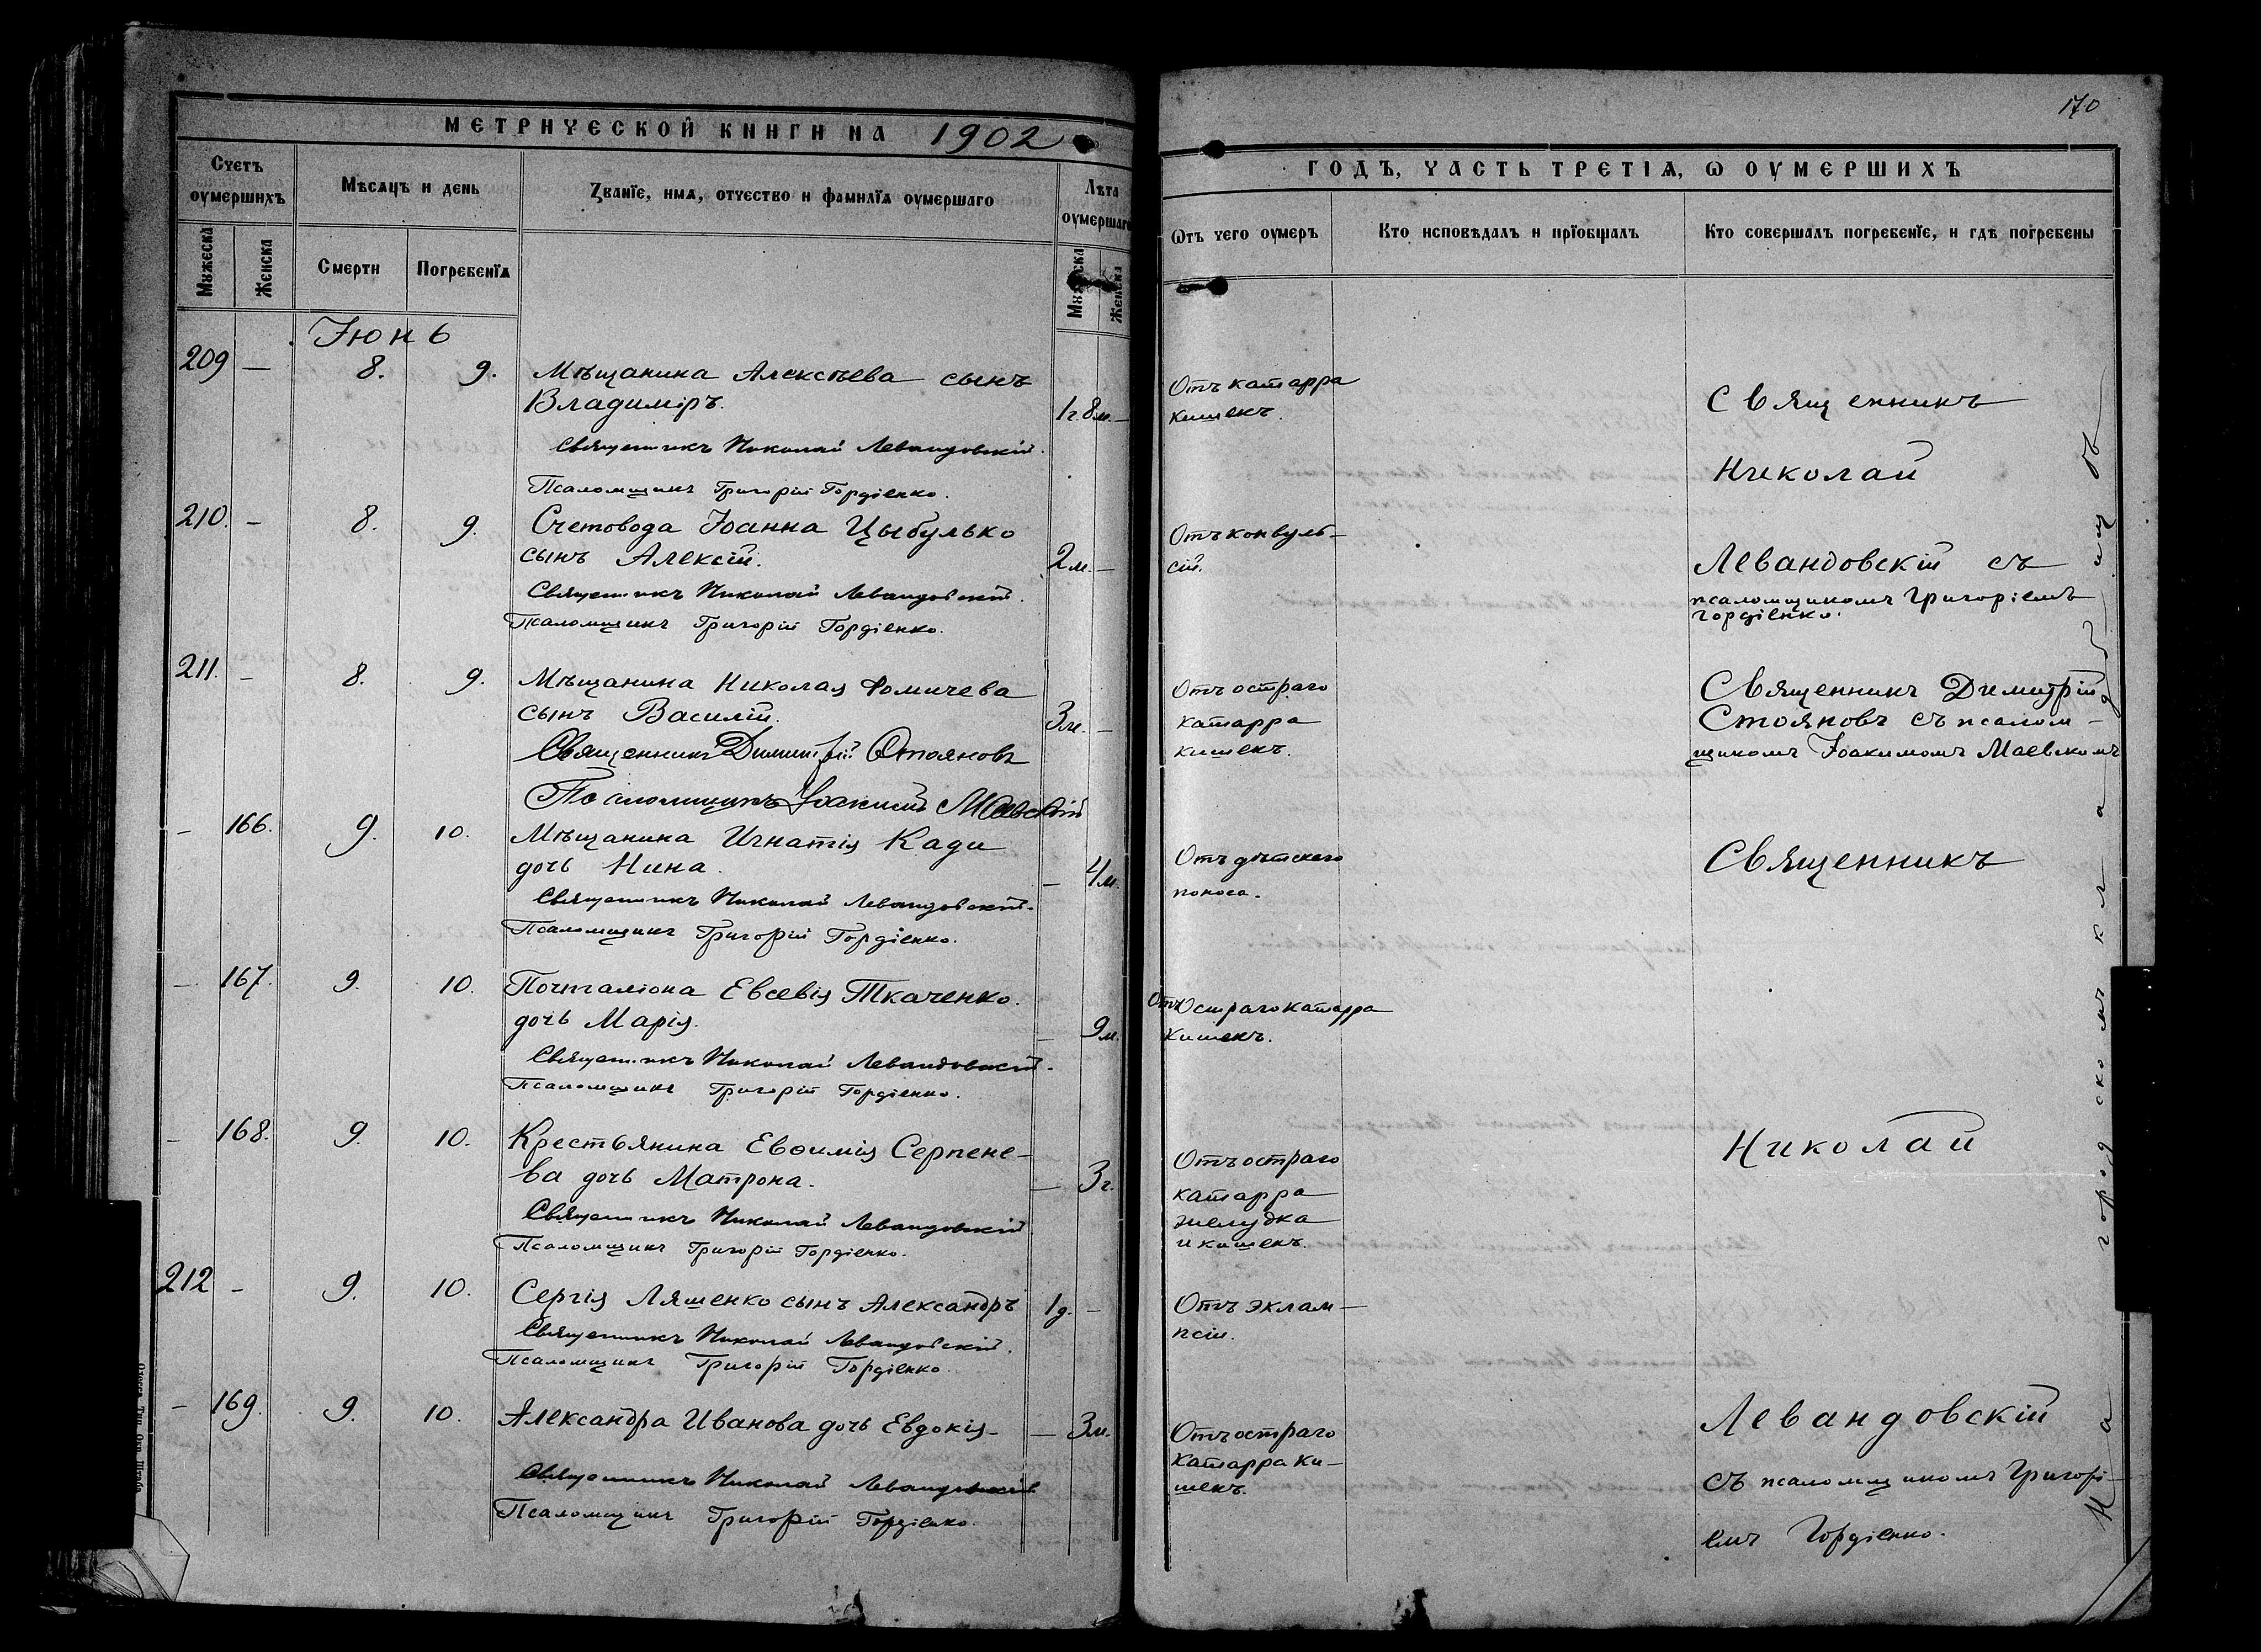 170
МЕТРИЧЕСКОЙ КНИГИ НА 1902
ГОДЪ, ЧАСТЬ ТРЕТІѦ, Ѡ ОУМЕРШИХЪ
Счетъ оумершихъ
Мѣсѧцъ и день
Званїе, имѧ, отчество и фамилїѧ оумершаго
Лѣта оумершаго
Ѿтъ чего оумеръ
Кто исповѣдалъ и прїобщалъ
Кто совершалъ погребенїе, и гдѣ погребены
Мужеска
Женска
Смерти
Погребенїѧ
Мужеска
Женска
Іюнь
209 — 8. 9. Мѣщанина Алексѣева сынъ
Владиміръ. 1г 8м. —
Священникъ Николай Левандовскій.
Псаломщикъ Григорій Гордіенко.
Отъ катарра
кишекъ.
210. — 8. 9. Счетовода Іоанна Цыбулько
сынъ Алексій. 2м. —
Священникъ Николай Левандовскій.
Псаломщикъ Григорій Гордіенко.
Отъ конвуль-
сій.
Священникъ
Николай
Левандовскій съ
псаломщикомъ Григоріемъ
Гордіенко.
211. — 8. 9. Мѣщанина Николая Фомичева
сынъ Василій. 3м. —
Священникъ Димитрій Стояновъ
Псаломщикъ Іоакимъ Маевскій
Отъ остраго
катарра
кишекъ.
Священникъ Димитрій
Стояновъ съ псалом-
щикомъ Іоакимомъ Маевскимъ
— 166. 9. 10. Мѣщанина Игнатія Кади
дочь Нина. — 4м.
Священникъ Николай Левандовскій.
Псаломщикъ Григорій Гордіенко.
Отъ дѣтскаго
поноса.
— 167. 9. 10. Почталіона Евсевія Ткаченко.
дочь Марія. — 9м.
Священникъ Николай Левандовскій.
Псаломщикъ Григорій Гордіенко.
Отъ Остраго катарра
кишекъ.
— 168. 9. 10. Крестьянина Евѳимія Серпене-
ва дочь Матрона. — 3г.
Священникъ Николай Левандовскій
Псаломщикъ Григорій Гордіенко.
Отъ остраго
катарра
желудка
и кишекъ.
212 — 9. 10. Сергія Ляшенко сынъ Александръ 1д. —
Священникъ Николай Левандовскій.
Псаломщикъ Григорій Гордіенко.
Отъ эклам-
псіи.
— 169. 9. 10. Александра Иванова дочь Евдокія — 3м.
Священникъ Николай Левандовскій
Псаломщикъ Григорій Гордіенко.
Отъ остраго
катарра ки-
шекъ.
Священникъ
Николай
Левандовскій
съ псаломщикомъ Григорі-
емъ Гордіенко.
На городскомъ кладбищѣ